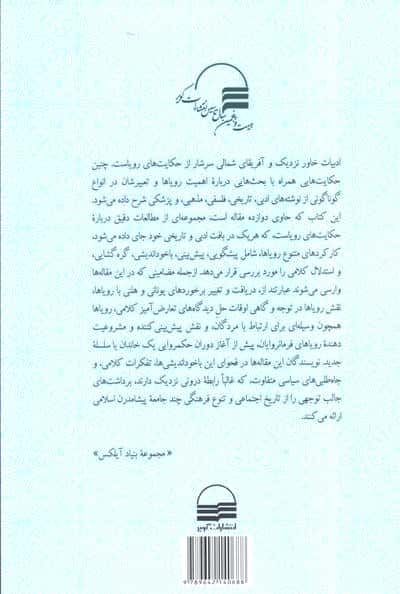 ادبیات خاور نزدیک و آفریقای شمالی سرشار از حکایت‌های رویاست. چنین
حکایت‌هایی همراه با بحث‌هایی دربارهٔ اهمیت رویاها و تعبیرشان در انواع
گوناگونی از نوشته‌های ادبی، تاریخی، فلسفی، مذهبی، و پزشکی شرح داده می‌شود.
این کتاب که حاوی دوازده مقاله است، مجموعه‌ای از مطالعات دقیق دربارهٔ
حکایت‌های رویاست، که هریک در بافت ادبی و تاریخی خود جای داده می‌شود،
کارکردهای متنوع رویاها، شامل پیشگویی، پیش‌بینی، باخوداندیشی، گره‌گشایی،
و استدلال کلامی را مورد بررسی قرار می‌دهد. ازجمله مضامینی که در این مقاله‌ها
وارسی می‌شوند عبارتند از، دریافت و تغییر برخوردهای یونانی و هلنی با رویاها،
نقش رویاها در توجه و گاهی اوقات حل دیدگاه‌های تعارض‌آمیز کلامی، رویاها
همچون وسیله‌ای برای ارتباط با مردگان، و نقش پیش‌بینی‌کننده و مشروعیت
دهندهٔ رویاهای فرمانروایان، پیش از آغاز دوران حکمروایی یک خاندان یا سلسلهٔ
جدید. نویسندگان این مقاله‌ها در فحوای این باخوداندیشی‌ها، تفکرات کلامی، و
جاه‌طلبی‌های سیاسی متفاوت، که غالباً رابطهٔ درونی نزدیک دارند، برداشت‌های
جالب توجهی را از تاریخ اجتماعی و تنوع فرهنگی چند جامعهٔ پیشامدرن اسلامی
ارائه می‌کنند.
«مجموعهٔ بنیاد آیلکس»
انتشارات کویر
9789642140886